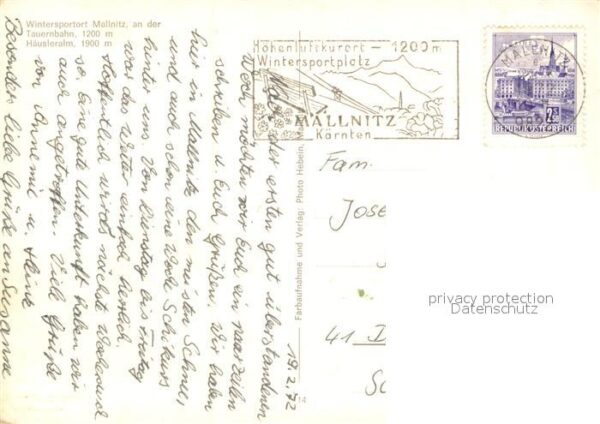 Wintersportort Mallnitz, an der
Tauernbahn, 1200 m
Häusleralm, 1900 m
Höhenluftkurort – 1200 m
Wintersportplatz
MALLNITZ
Kärnten
MALLNITZ
2S
REPUBLIK ÖSTERREICH
19.2.72
Nach der ersten gut überstandenen
Woche möchten wir Euch ein paar Zeilen
schreiben u. Euch grüßen. Wir haben
hier in Mallnitz den meisten Schnee,
und auch schon eine Woche Schikurs
hinter uns. Von Dienstag bis Freitag
war das Wetter einfach herrlich.
Hoffentlich wird's nächste Woche auch
so. Eine gute Unterkunft haben wir
auch angetroffen. Viele Grüße
von Annemie u. Heinz
Besonders liebe Grüße an Susanne
Farbaufnahme und Verlag: Photo Hebein,
14
Fam.
Jose
41
privacy protection
Datenschutz